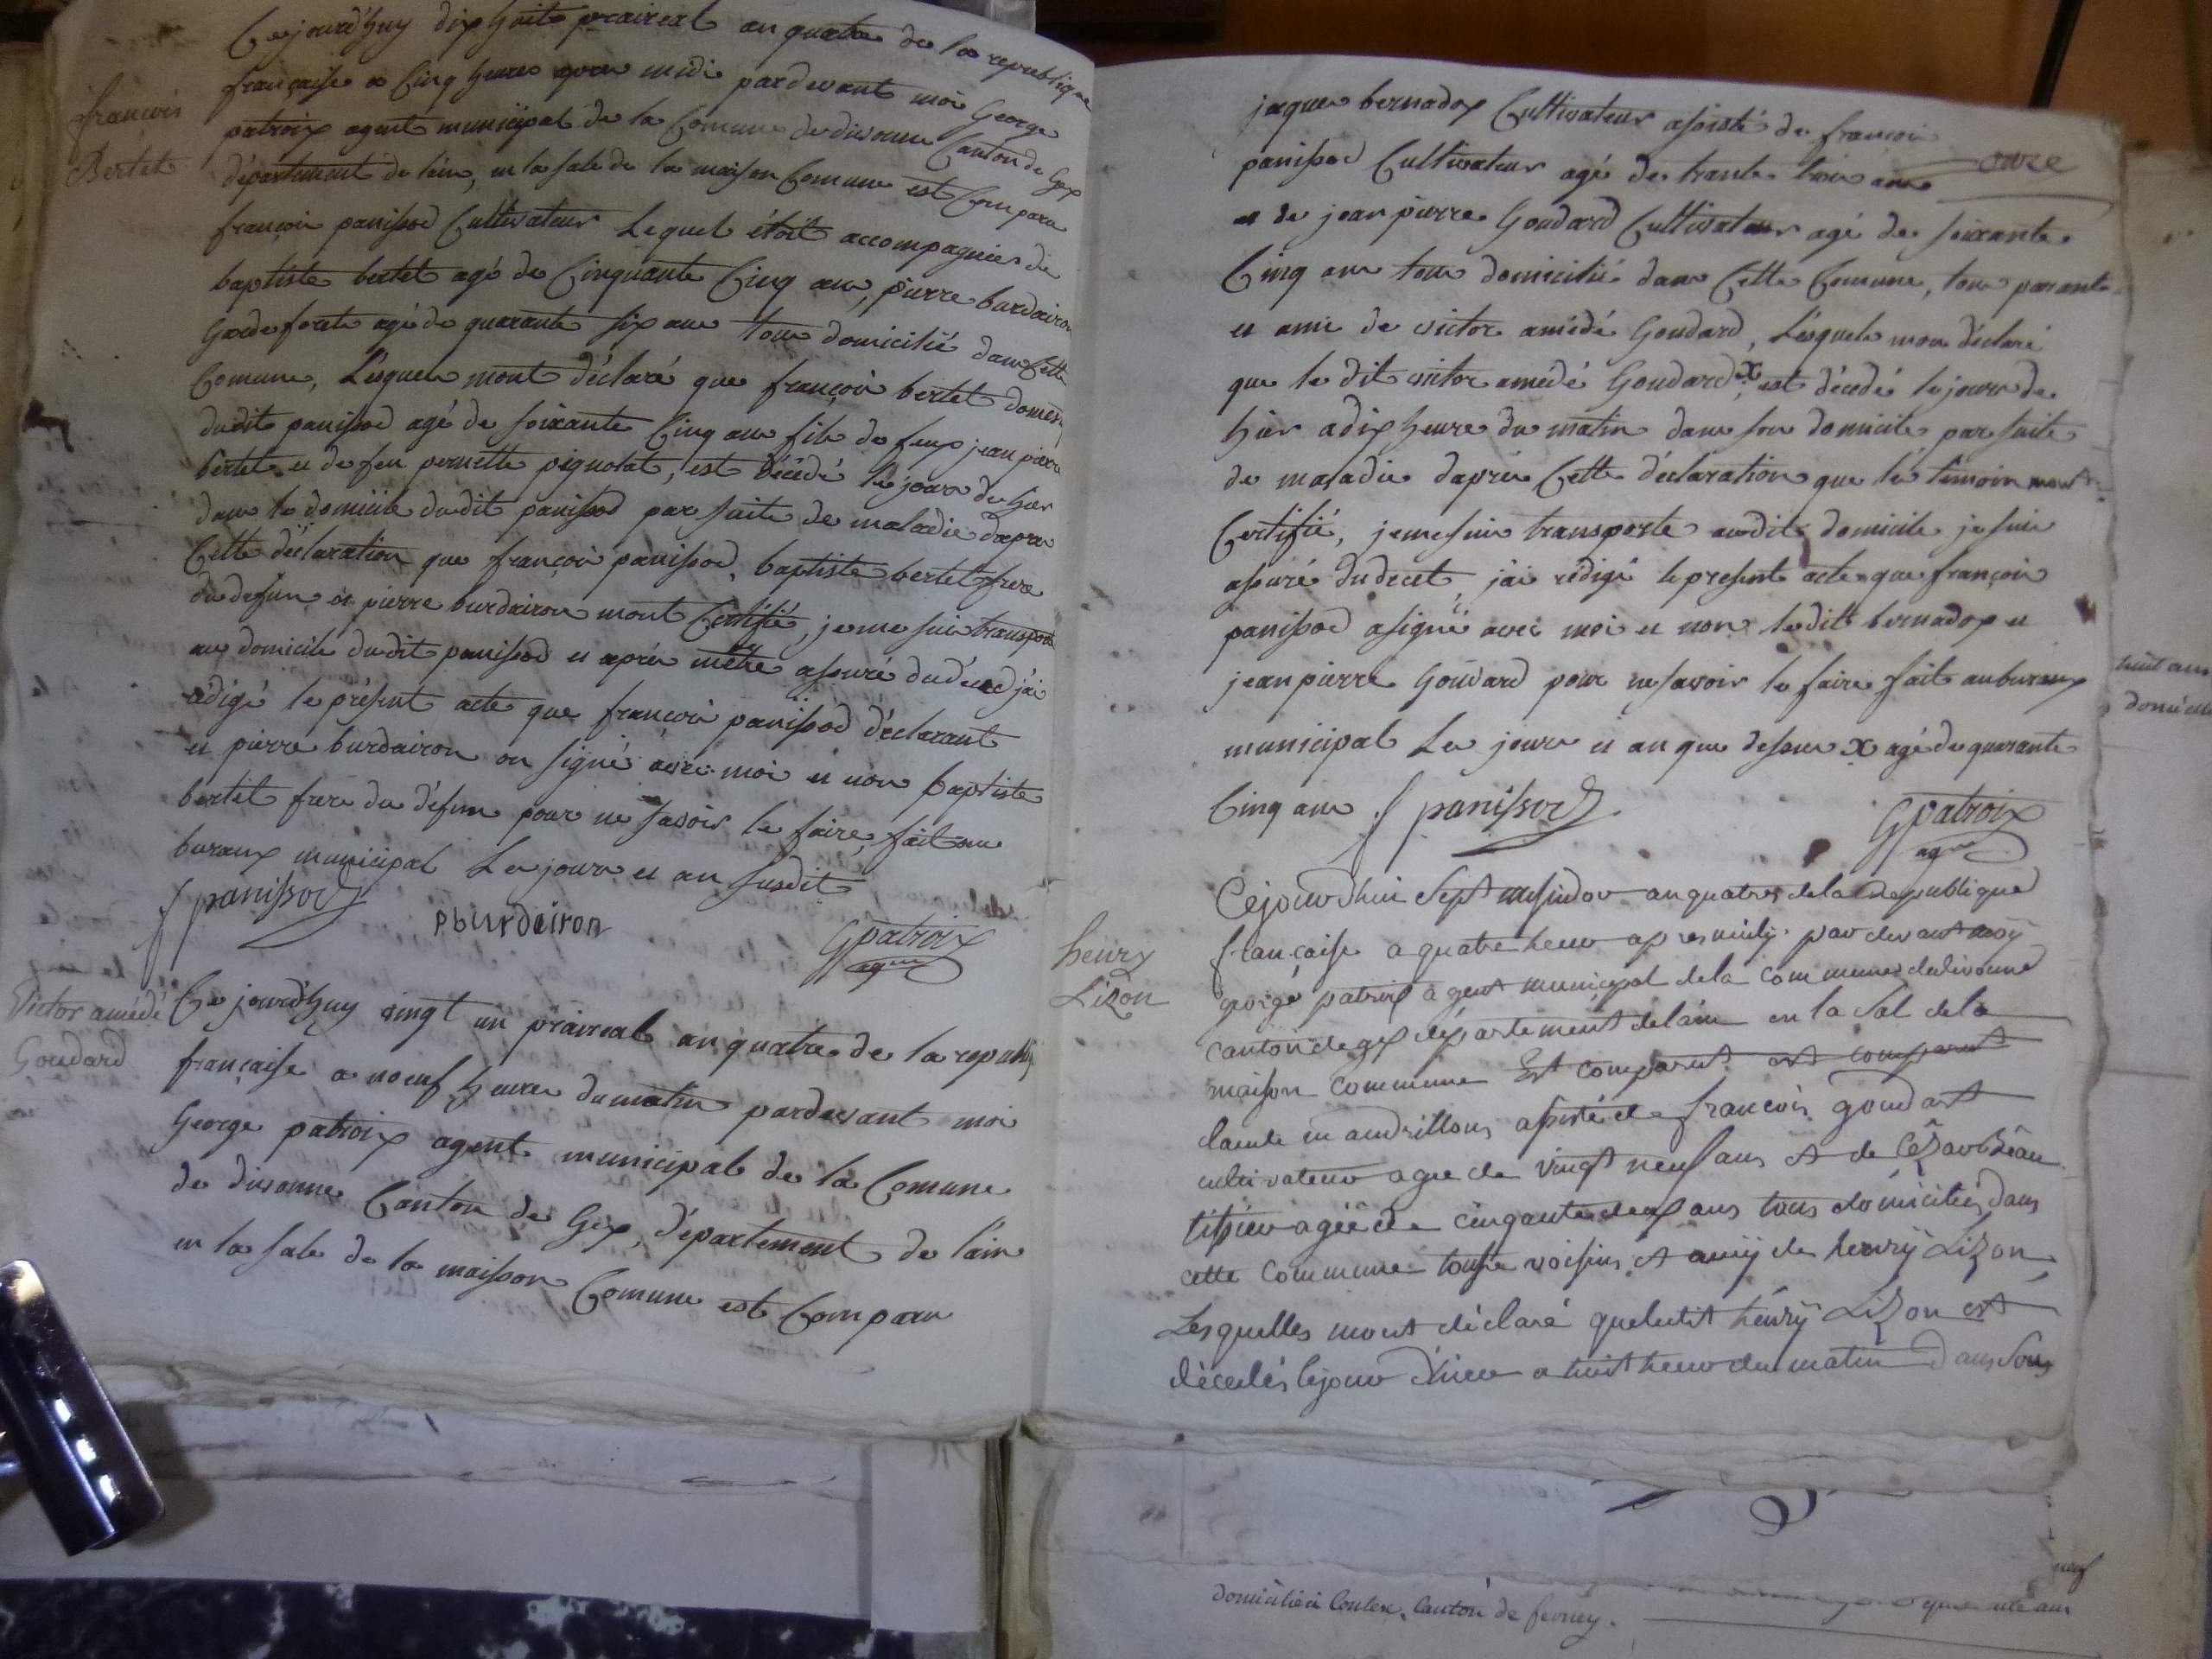 Cejourd'huy dix huit praireal an quatre de la republique
française a Cinq heures apres midi pardevant moi George
patroix agent municipal de la Comune de divonne Canton de Gex
département de lain, en la sale de la maison Comune est Comparu
françois panissod Cultivateur Lequel étoit accompagnier de
baptiste bertet agé de Cinquante Cinq ans, pierre burdairon
Garde foret agé de quarante six ans tous domicilié dans Cette
Comune, Lesquels mont déclaré que françois bertet domes
dudit panissod agé de soixante Cinq ans fils de feux jean pierre
bertet et de feu pernette pignolat, est décédé le jour de hier
dans le domicile dudit panissod par suite de maladie dapres
Cette déclaration que françois panissod, baptiste bertet frere
du defun et pierre burdairon mont Certifié, je me suis transporté
au domicile dudit panissod et après mêtre assuré du décéd j'ai
rédigé le présent acte que françois panissod déclarant
et pierre burdairon on signé avec moi et non baptiste
bertet frere du défun pour ne savoir le faire, fait au
bureaux municipal Les jours et an susdit
françois
Bertet
f panissod
pburdairon
Gpatroix
agen
Victor amédé
Goudard
Ce jourd'huy vingt un prairreal an quatre de la republi
française a noeuf heures du matin pardevant moi
George patroix agent municipal de la Comune
de divonne Canton de Gex, département de lain
en la sale de la maisson Comune est Comparu
jaques bernadox Cultivateur assisté de françois
onze
panissod Cultivateur agé de trante trois ans
et de jean pierre Goudard Cultivateur agé de soixante
Cinq ans tous domicilié dans Cette Comune, tous parants
et amis de victor amédé Goudard, Lesquels mon déclaré
que le dit victor amédé Goudard x, est décédé le jour de
hier a dix heure du matin dans son domicile par suite
de maladie daprès Cette déclaration que les témoin mont
Certifié, je me suis transporté audit domicile je suis
assuré du decet, j'ai rédigé le present acte que françois
panissod a signé avec moi et non ledit bernadox et
jean pierre Goudard pour ne savoir le faire fait au bureaux
municipal Les jours et an que dessus x agé de quarante
Cinq ans f panissod
Gpatroix
agen
henry
Lizon
Cejourdhui Sept mesidor an quatres de la Republique
française a quatre heur apres midy par devant moÿ
george patroix agent municipal de la commune de divonne
canton de gex département de lain en la Sal de la
maison commune Est comparut est comparut
claude mandrillons assisté de françois goudart
cultivateur agée de vingt neuf ans et de
agée de cinqante deux ans tous domiciliés dans
cette commune tousse voisins et amij de henrÿ Lizon
Lesquelles mont déclaré queledit henrÿ Lizon est
décedés le jour d'hier a huit heur du matin dans son
huit ans
domicilié
neuf
domicilié à Conlex, Canton de ferney.